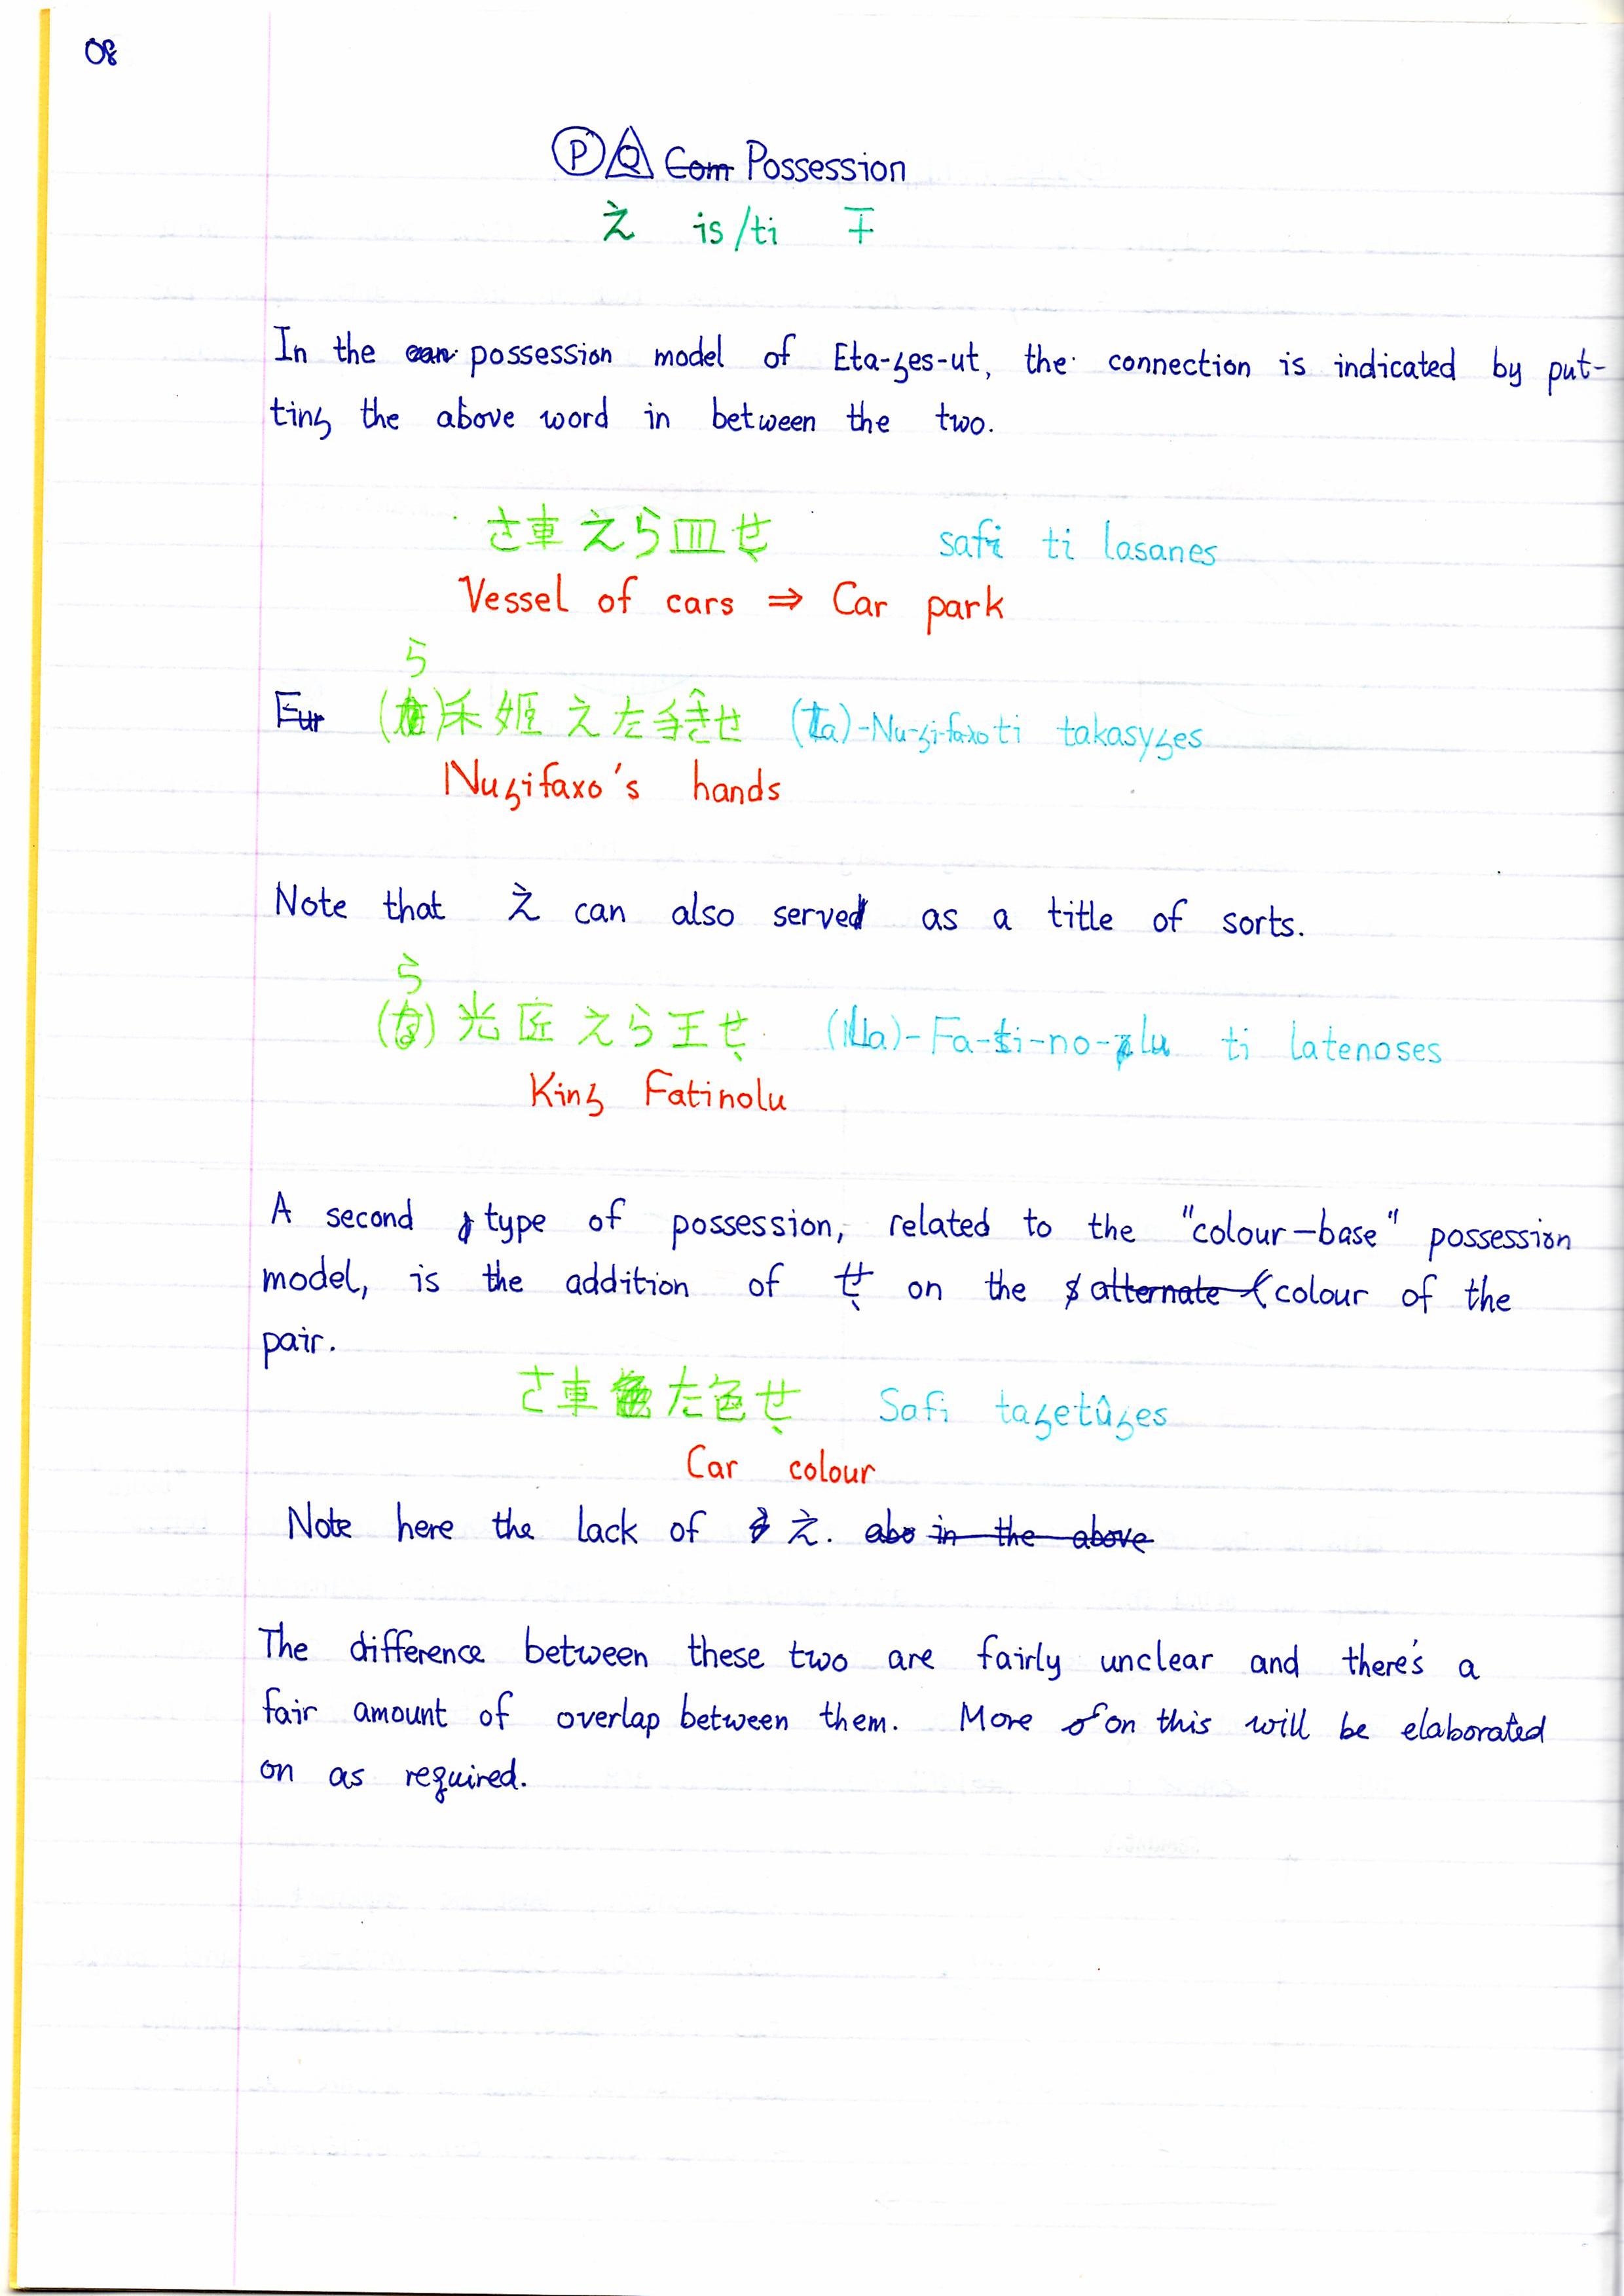 08
P Q Com Possession
え is/ti 干
In the can possession model of Eta-ges-ut, the connection is indicated by put-
ting the above word in between the two.
さ車えら皿せ safi ti lasanes
Vessel of cars ⇒ Car park
ら
Eur ( )禾姫えた手きせ (La)-Nu-gi-faxo ti takasyges
Nugifaxo's hands
Note that え can also served as a title of sorts.
ら
( )光匠えら王せ (La)-Fa-ti-no-lu ti latenoses
King Fatinolu
A second type of possession, related to the "colour-base" possession
model, is the addition of せ on the alternate colour of the
pair.
さ車た色せ Safi tagetûges
Car colour
Note here the lack of え. abo in the above
The difference between these two are fairly unclear and there's a
fair amount of overlap between them. More on this will be elaborated
on as required.